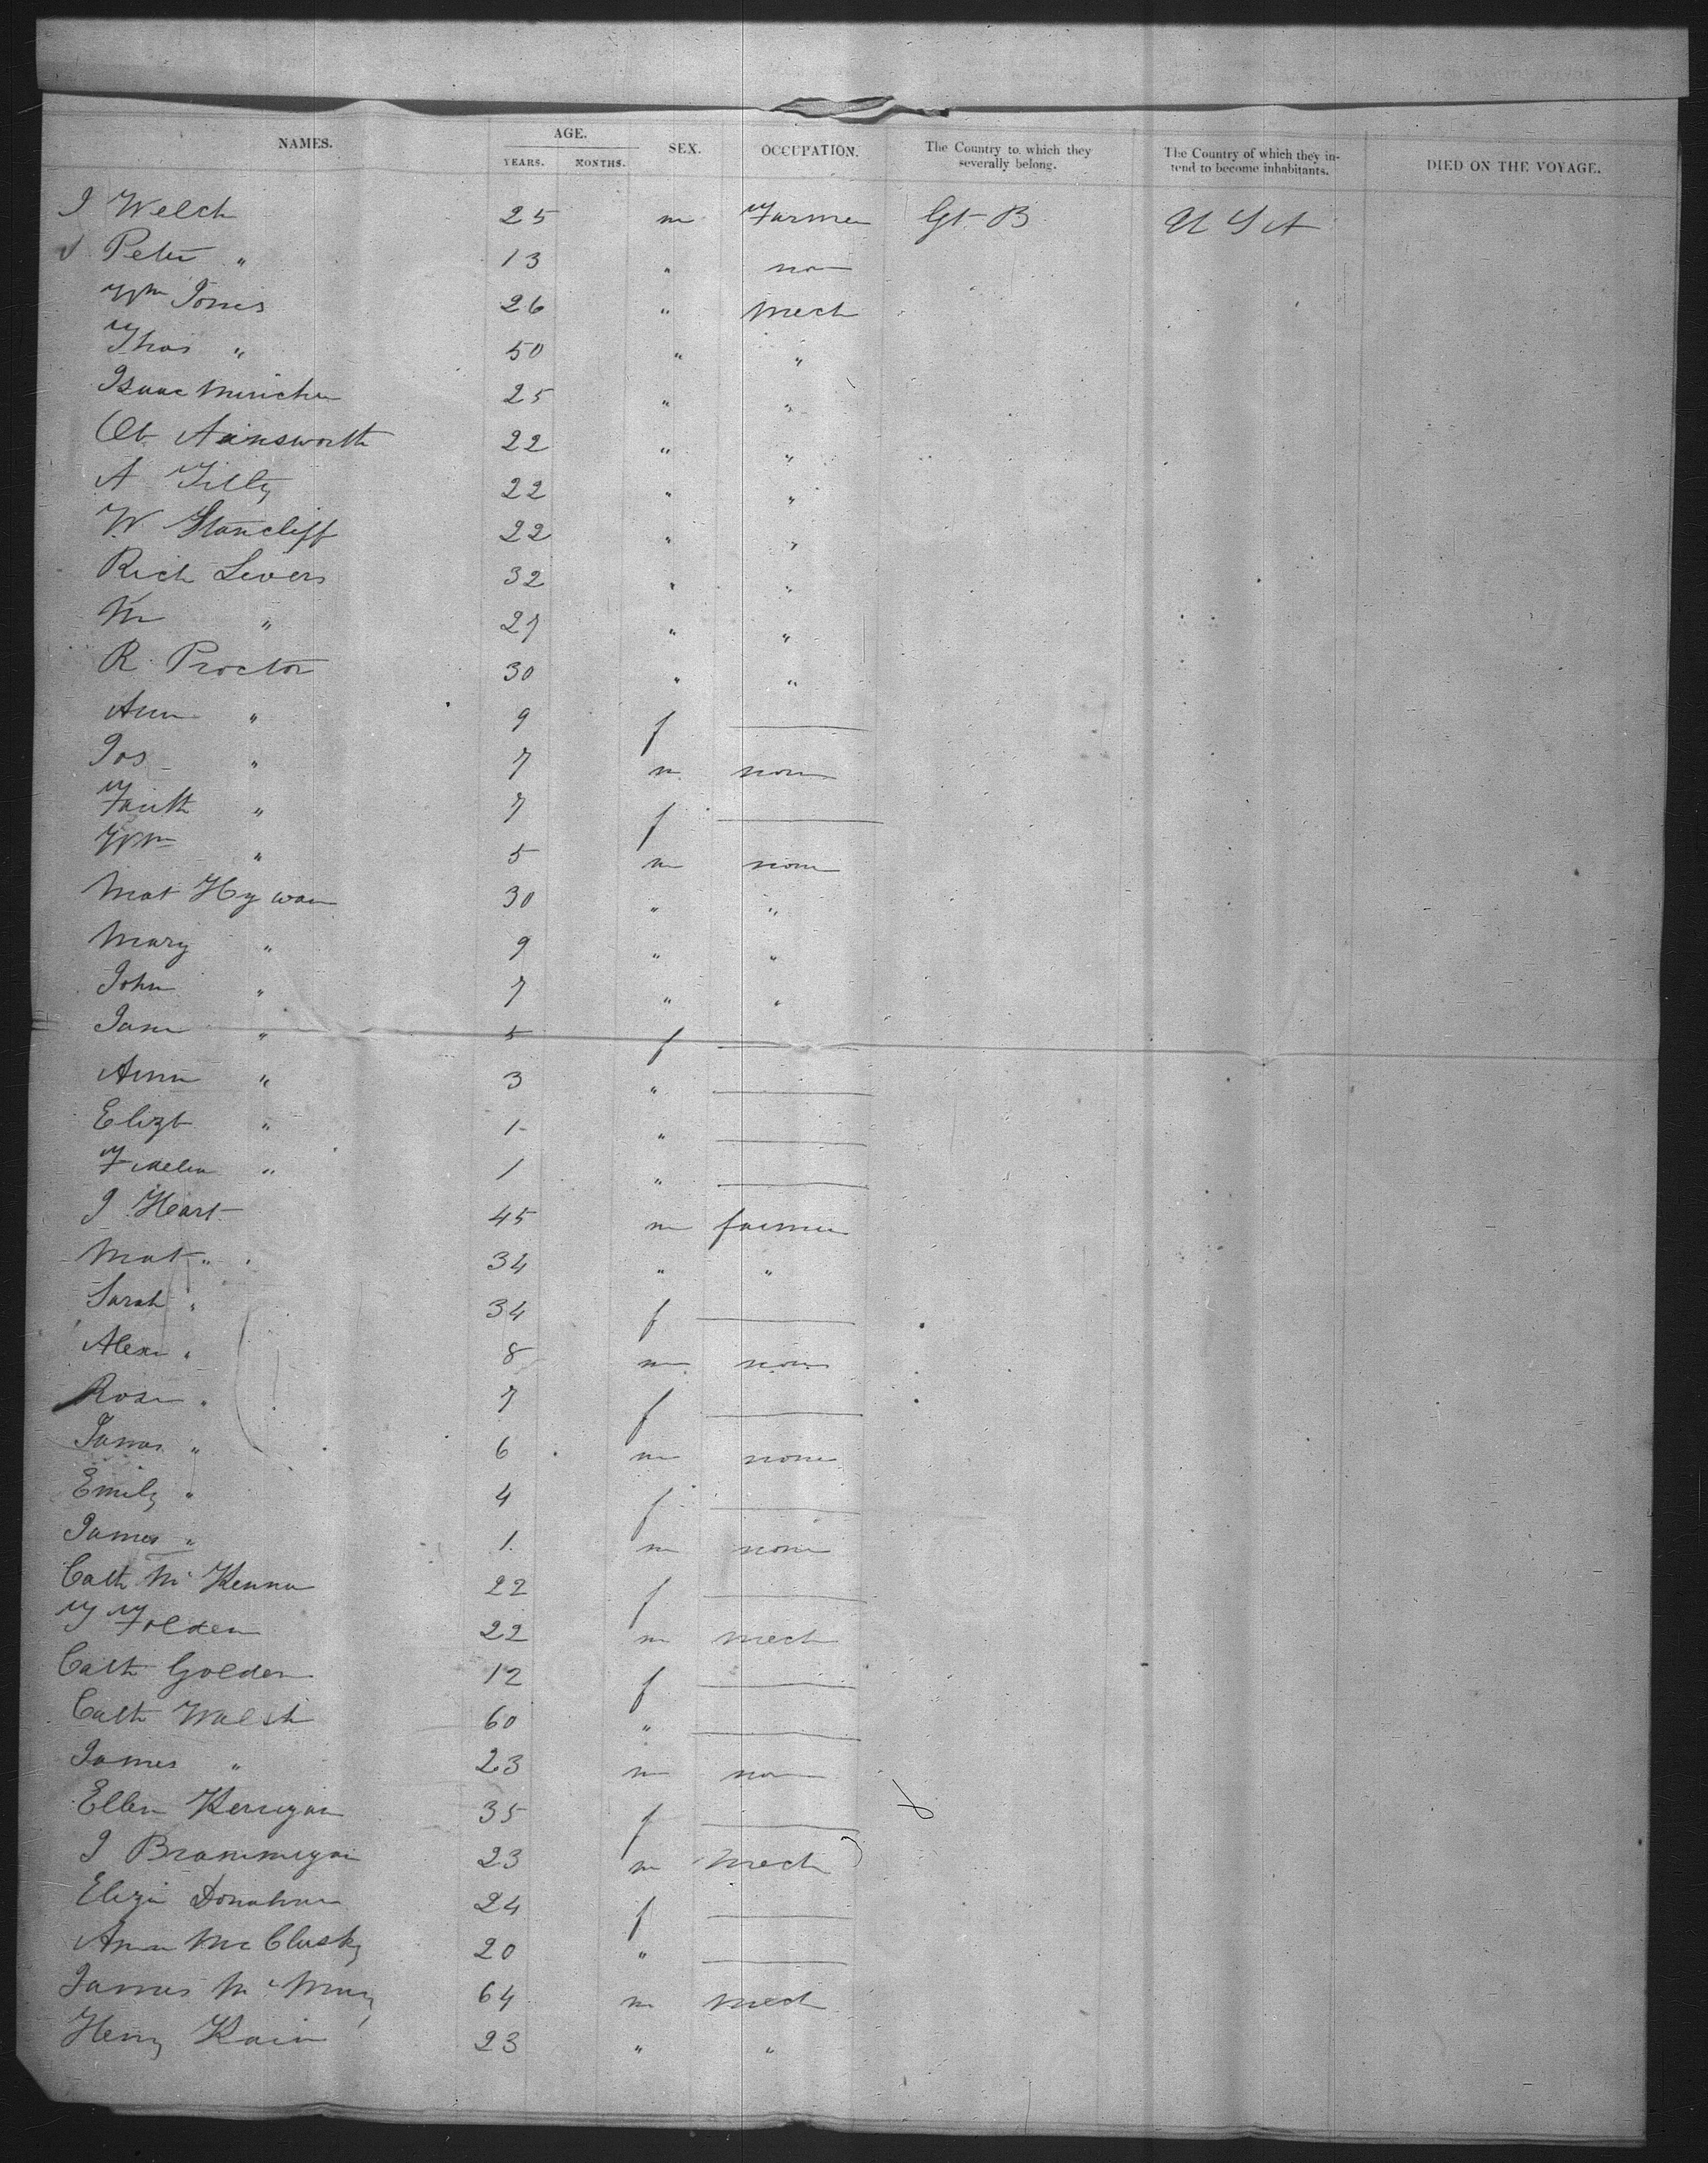 NAMES. AGE. YEARS. MONTHS. SEX. OCCUPATION. The Country to which they severally belong. The Country of which they intend to become inhabitants. DIED ON THE VOYAGE.
J Welch 25 m Farmer Gt B U S A
Peter " 13 " non
Wm Jones 26 " mech
Thos " 50 " "
Isaac 25 " "
Ainsworth 22 " "
A Tilly 22 " "
W. Stancliff 22 " "
Rich Livers 32 " "
" 27 " "
R Proctor 30 " "
Ann " 9 f —
Jos " 7 m non
Faith " 7 f —
Wm " 5 m none
Mat Hy wan 30 " "
Mary " 9 " "
John " 7 " "
Jane " 5 f —
Ann " 3 " —
Elizt " 1 " —
" 1 " —
J Hart 45 m farmer
Mat " 34 " "
Sarah " 34 f —
Alex " 8 m non
Rose " 7 f —
James " 6 m none
Emily " 4 f —
James " 1 m none
Cath Mc Kenna 22 f —
22 m mech
Cath Golden 12 f —
Cath Walsh 60 " —
James " 23 m non
Ellen Kerrigan 35 f —
J Brannnigan 23 m mech
Eliza Donahue 24 f —
Ann McClusky 20 " —
James Mc 64 m mech
Henry Kain 23 " "